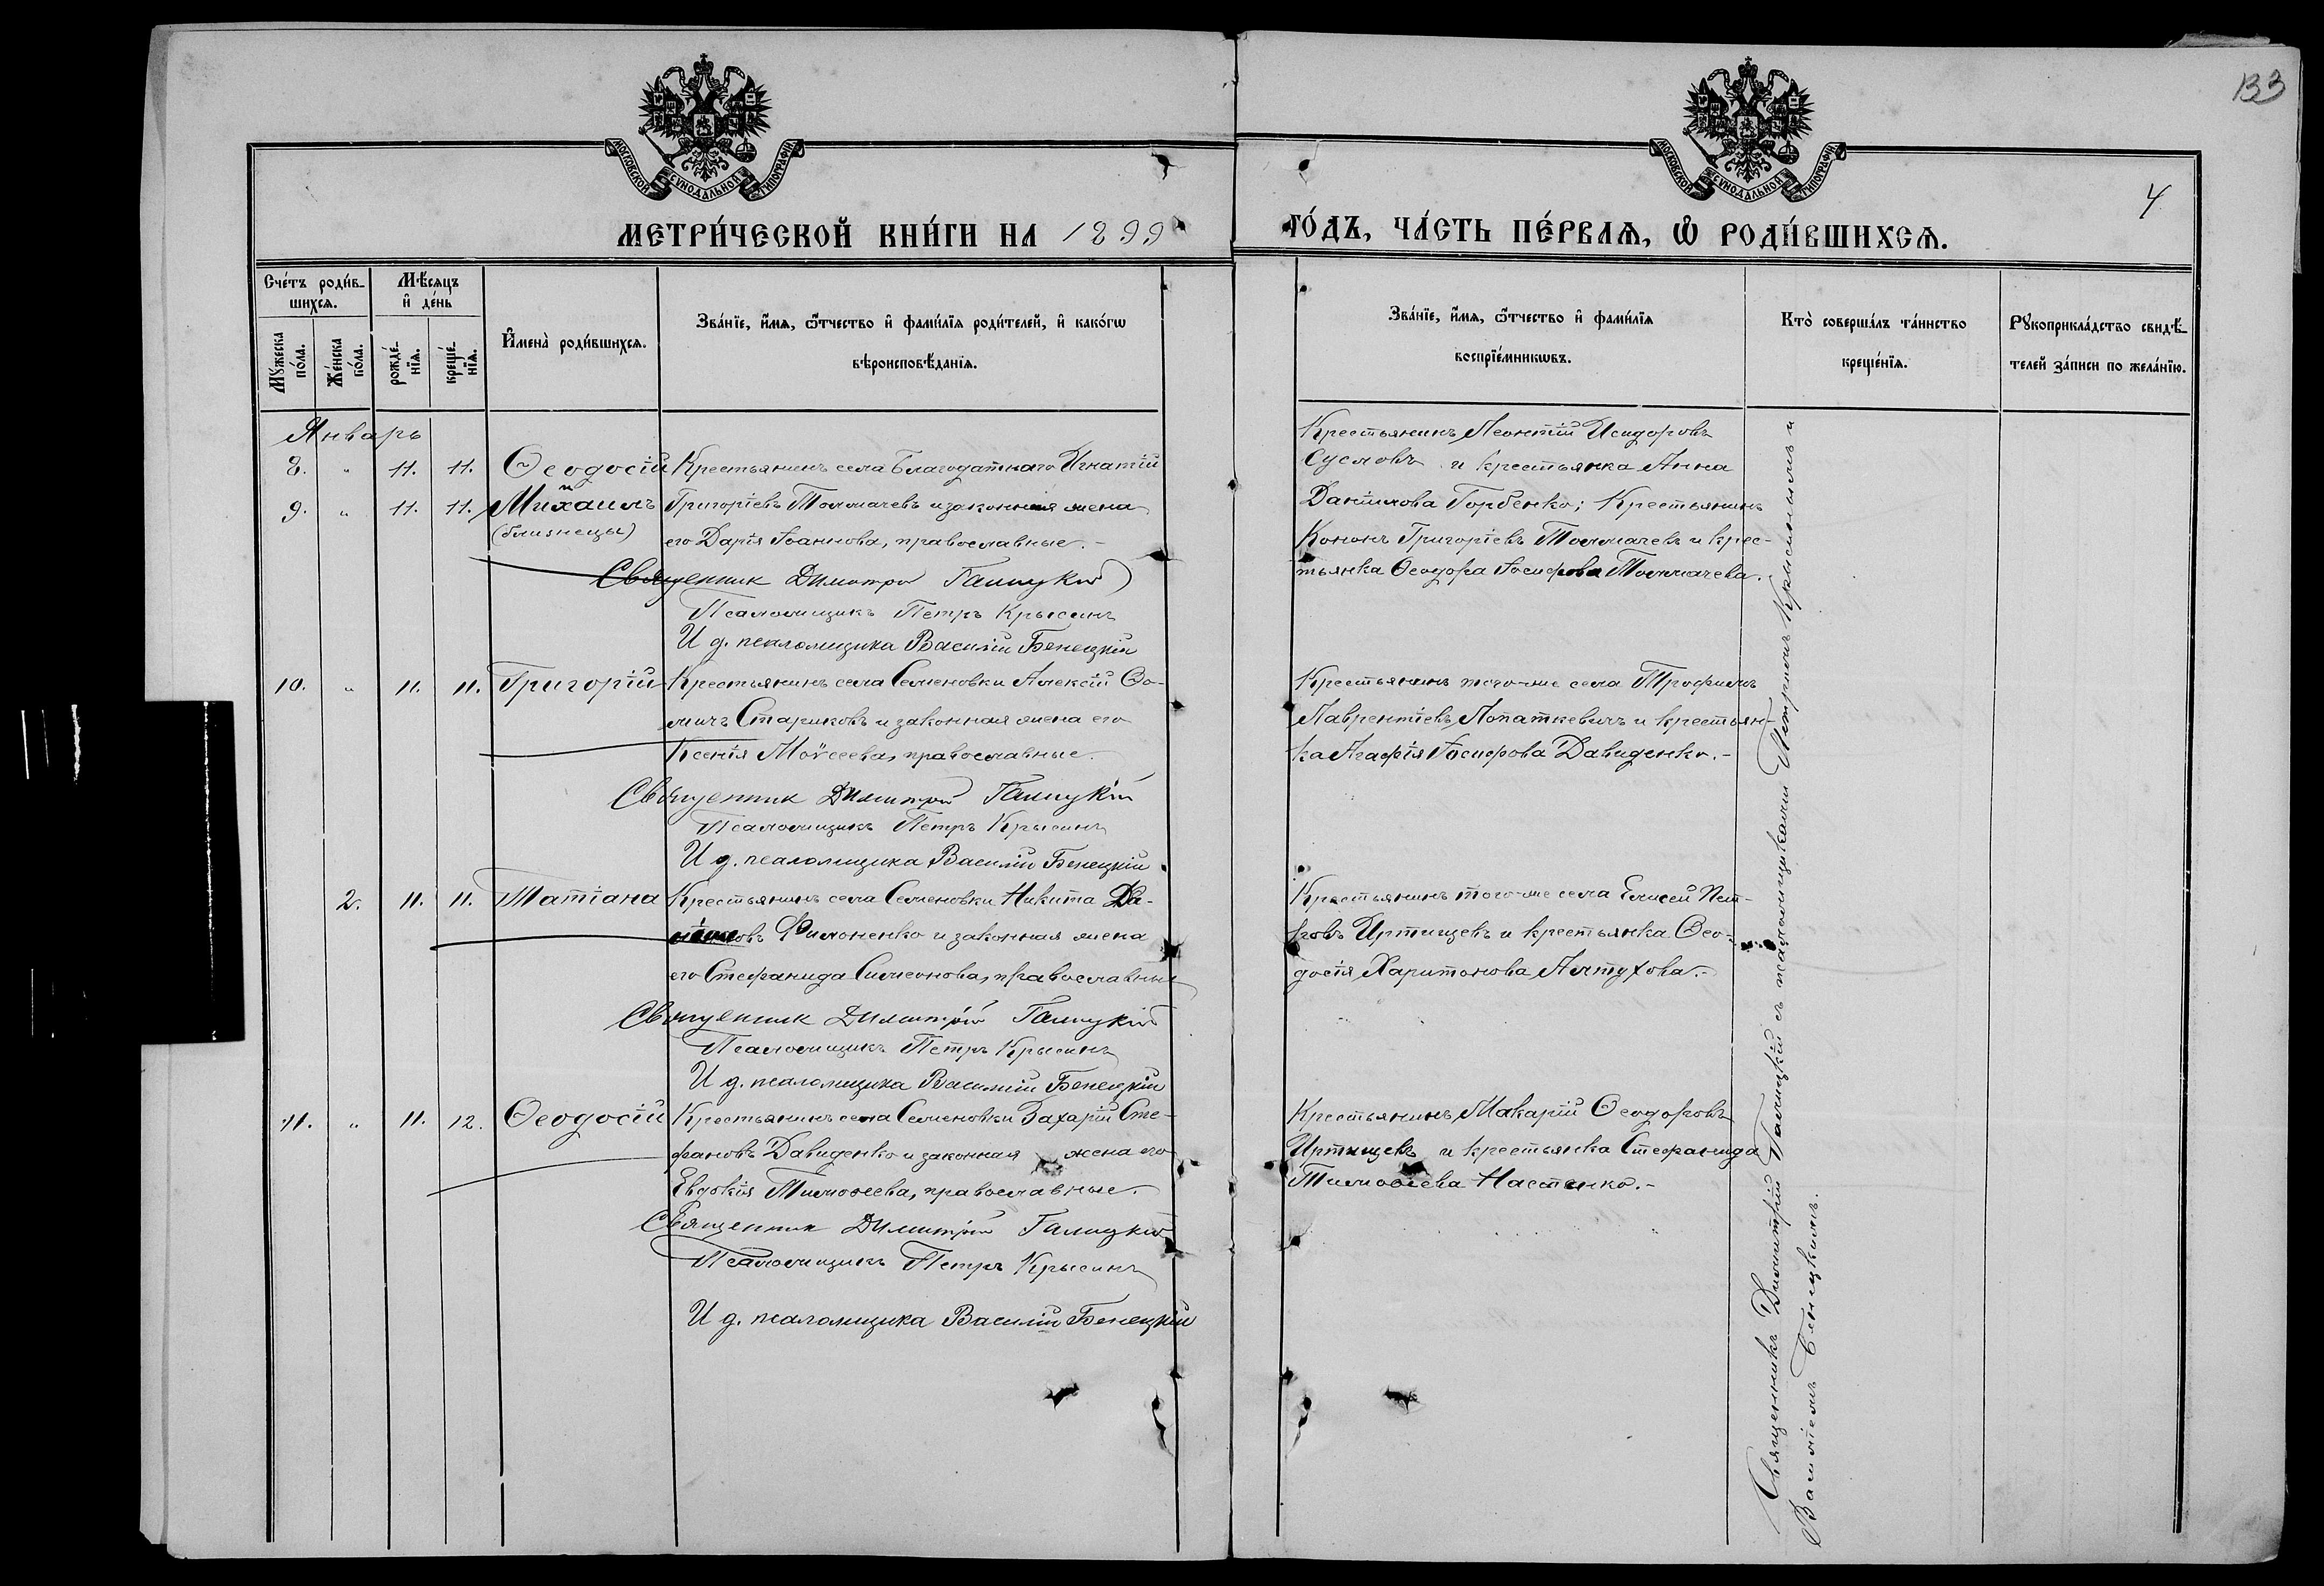 133
МОСКОВСКОЙ СѴНОДАЛЬНОЙ ТИПОГРАФІИ
МОСКОВСКОЙ СѴНОДАЛЬНОЙ ТИПОГРАФІИ
4
МЕТРИ́ЧЕСКОЙ КНИ́ГИ НА 1899
ГО́ДЪ, ЧА́СТЬ ПЕ́РВАѦ, Ѽ РОДИ́ВШИХСѦ.
Сче́тъ роди́в-
шихсѧ.
Мꙋжеска по́ла.
Же́нска по́ла.
Мѣ́сѧцъ
и҆ де́нь
рожде́-
нїѧ.
креще́-
нїѧ.
И҆мена̀ роди́вшихсѧ.
Зва́нїе, и҆́мѧ, ѻ҆́тчество и҆ фами́лїѧ роди́телей, и҆ како́гѡ
вѣроисповѣ́данїѧ.
Зва́нїе, и҆́мѧ, ѻ҆́тчество и҆ фами́лїѧ
воспрїе́мникѡвъ.
Кто̀ соверша́лъ та́инство
креще́нїѧ.
Рꙋкоприкла́дство свидѣ́-
телей за́писи по жела́нїю.
Январь
8. " 11. 11. Ѳеодосій Крестьянинъ села Благодатнаго Игнатій
9. " 11. 11. и Михаилъ Григоріевъ Толмачевъ и законная жена
(близнецы) его Дарія Іоаннова, православные.-
Священник Димитрій Галицкій
Псаломщикъ Петръ Крысинъ
И д. псаломщика Василій Бенецкій
Крестьянинъ Леонтій Исидоровъ
Сусловъ и крестьянка Анна
Даніилова Горбенко; Крестьянинъ
Кононъ Григоріевъ Толмачевъ и крес-
тьянка Ѳеодора Іосифова Толмачева.
10. " 11. 11. Григорій Крестьянинъ села Семеновки Алексій Ѳо-
мичъ Стариковъ и законная жена его
Ксенія Моѵсеева, православные.
Священник Димитрій Галицкій
Псаломщикъ Петръ Крысинъ
И д. псаломщика Василій Бенецкій
Крестьянинъ того-же села Трофимъ
Лаврентіевъ Лопаткевичъ и крестьян-
ка Агафія Іосифова Давиденко.-
2. 11. 11. Татіана Крестьянинъ села Семеновки Никита Да-
ніиловъ Филоненко и законная жена
его Стефанида Симеонова, православные
Священник Димитрій Галицкій
Псаломщикъ Петръ Крысинъ
И д. псаломщика Василій Бенецкій
Крестьянинъ того-же села Елисей Пет-
ровъ Иртищевъ и крестьянка Ѳео-
досія Харитонова Алтухова.-
11. " 11. 12. Ѳеодосій Крестьянинъ села Семеновки Захарій Сте-
фановъ Давиденко и законная жена его
Евдокія Тимоѳеева, православные.
Священник Димитрій Галицкій
Псаломщикъ Петръ Крысинъ
И д. псаломщика Василій Бенецкій
Крестьянинъ Макарій Ѳеодоровъ
Иртищевъ и крестьянка Стефанида
Тимоѳеева Настенко.-
Священникъ Димитрій Галицкій съ псаломщиками Петромъ Крысинымъ и
Василіемъ Бенецкимъ.